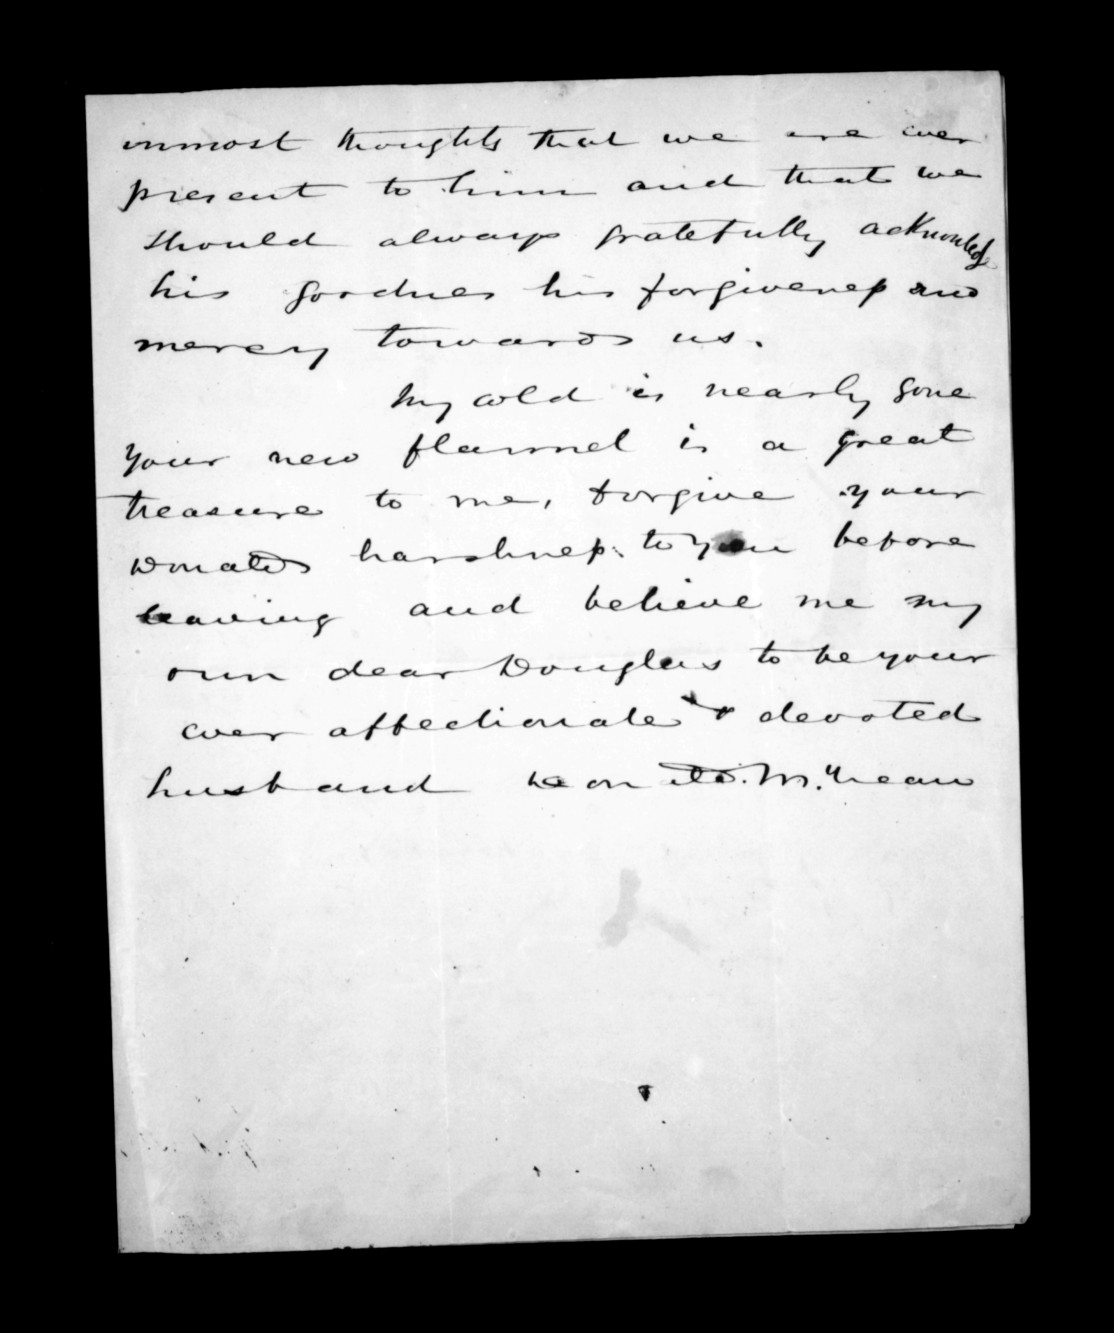 inmost thoughts that we are ever
present to him and that we
should always gratefully acknowledge
his goodness his forgiveness and
mercy towards us.
My cold is nearly gone
your new flannel is a great
treasure to me, forgive your
Donald's harshness to you before
leaving and believe me my
own dear Douglas to be your
ever affectionate & devoted
husband Donald McLean